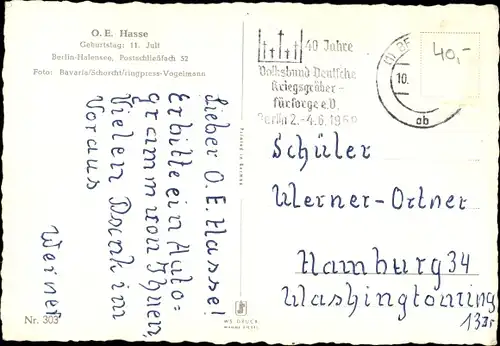 O. E. Hasse
Geburtstag: 11. Juli
Berlin-Halensee, Postschließfach 52
Foto: Bavaria/Schorcht/ringpress-Vogelmann
Lieber O. E. Hasse!
Erbitte ein Auto=
gramm von Ihnen,
Vielen Dank im
Voraus
Werner
Nr. 303
40 Jahre
Volksbund Deutsche
Kriegsgräber-
fürsorge e.V.
Berlin 2.-4.6.1959
10.
ab
40,-
Schüler
Werner-Ortner
Hamburg 34
Washingtonring
WS-DRUCK